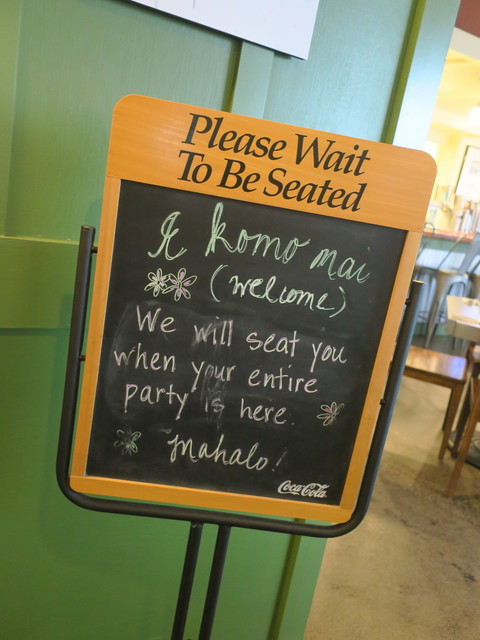 Please Wait
To Be Seated
E komo mai
(welcome)
We will seat you
when your entire
party is here.
mahalo!
Coca-Cola